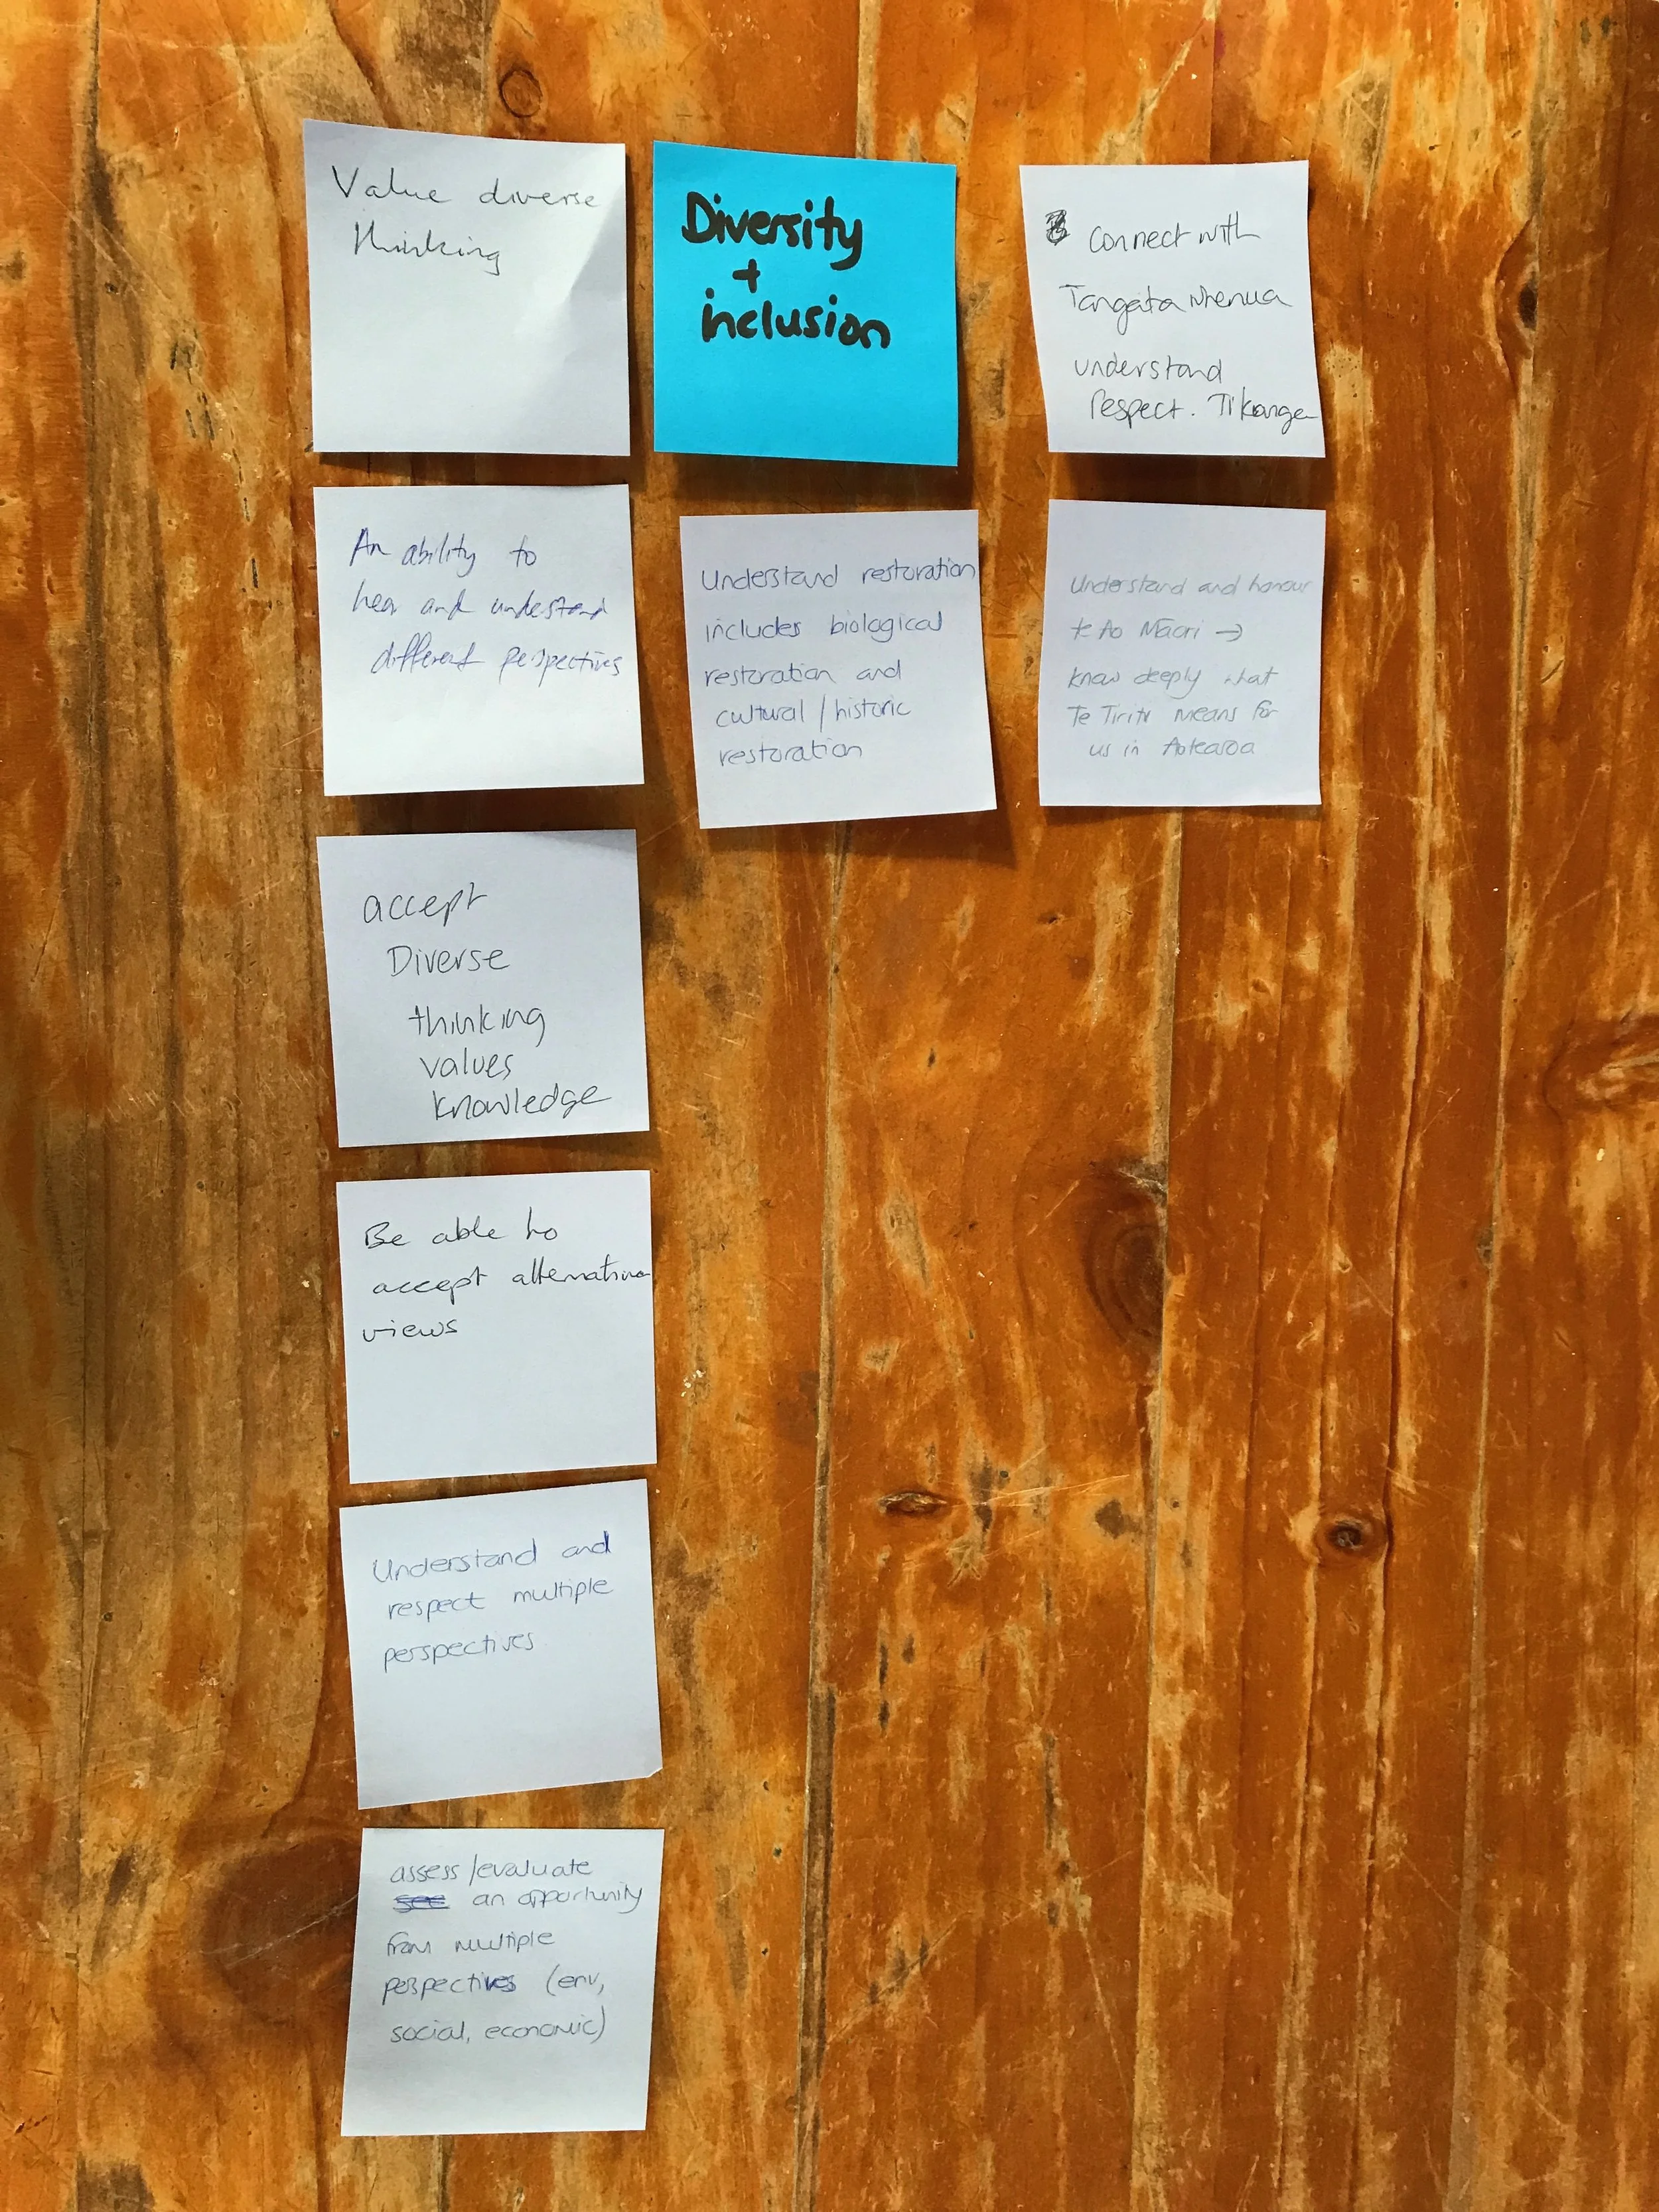 Value diverse
thinking
An ability to
hear and understand
different perspectives
accept
Diverse
thinking
values
knowledge
Be able to
accept alternative
views
Understand and
respect multiple
perspectives
assess/evaluate
see an opportunity
from multiple
perspectives (env,
social, economic)
Diversity
+
inclusion
Understand restoration
includes biological
restoration and
cultural/historic
restoration
connect with
Tangata Whenua
understand
Respect. Tikanga
Understand and honour
te Ao Māori →
know deeply what
Te Tiriti means for
us in Aotearoa